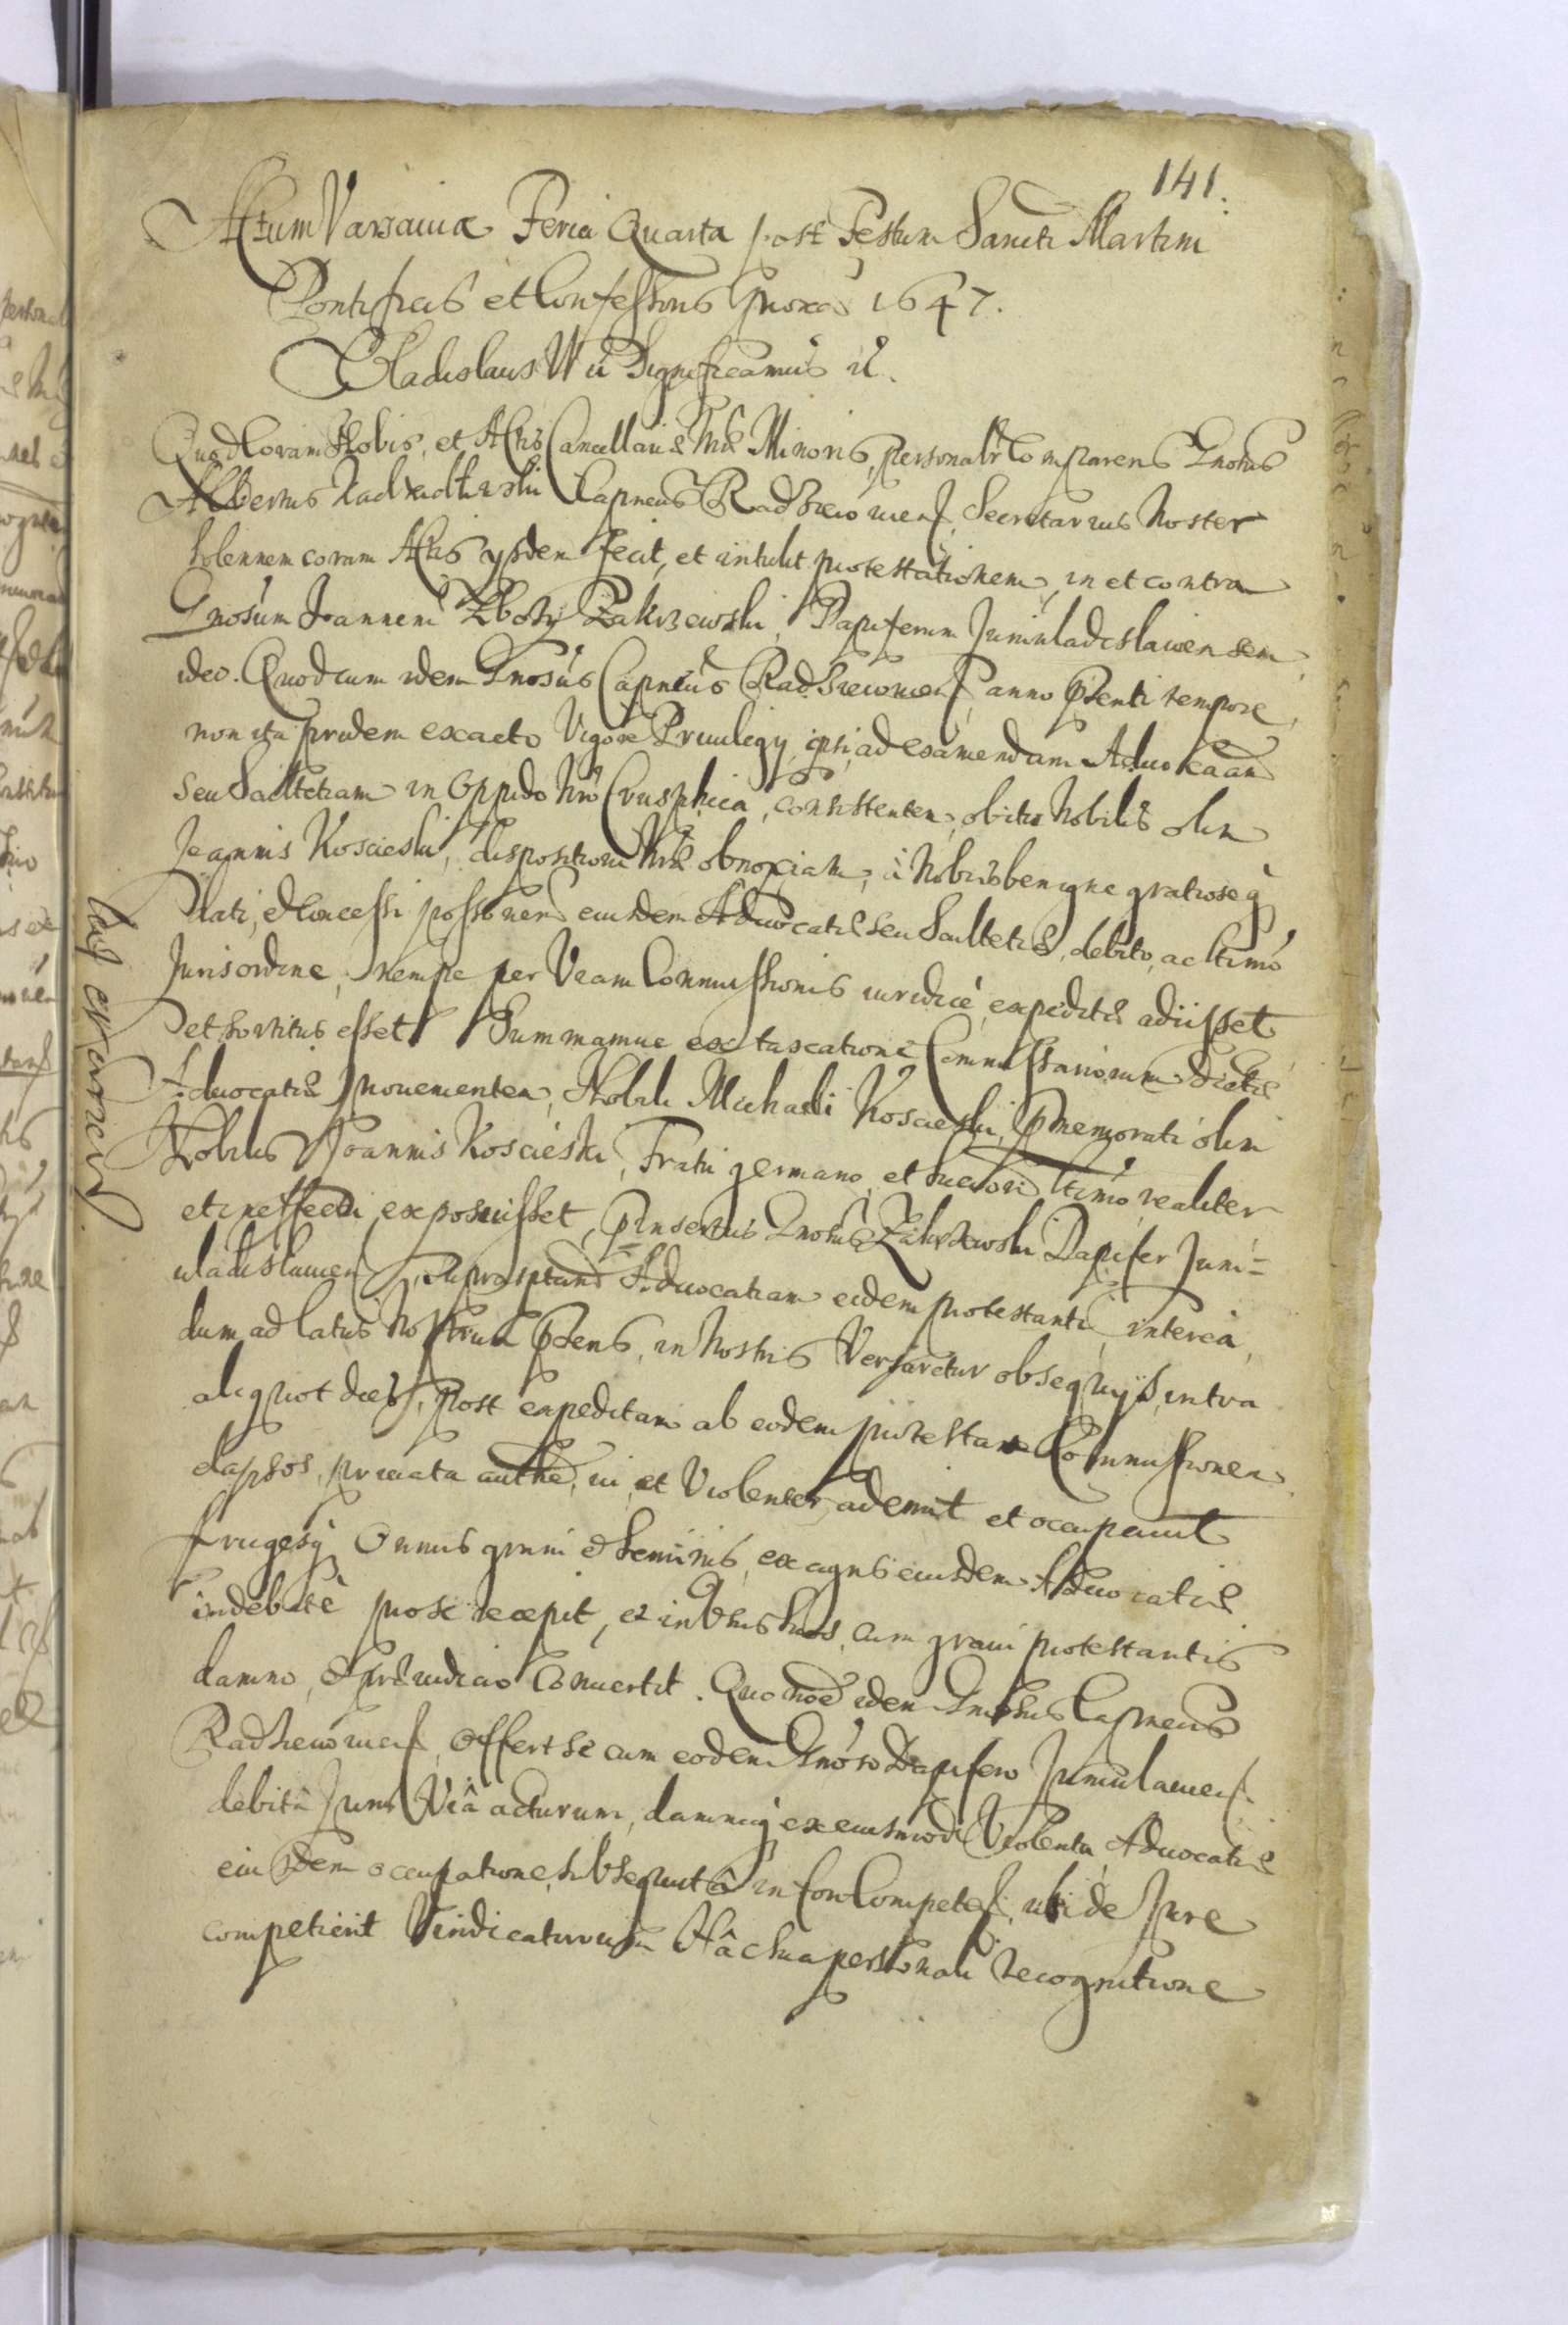 141.
Actum Varsaviæ Feria Quarta post Festum Sancti Martini
Pontificis et Confessoris proxa 1647.
Vladislaus IV Significamus
Quod Coram Nobis, et Actis Cancellariæ Nræ Minoris, personalr Comparens Gnosus
Albertus Capneus Radzieiovien, Secretarius Noster
Solennem coram Actis ysdem fecit, et intulit protestationem, in et contra
Gnosum Joannem Zbozy Zakrzewski, Dapiferum Juniuladislauiensem
ideo. Quod cum idem Gnosus Capneus Radzieiovien, anno pnti tempore,
non ita pridem exacto Vigore Priuilegij, ipsi, ad eximendam Aduocaam
seu Scultetiam in Oppido Nro Crusphica, consistentem, obitu Nobilis olim
Joannis Koscieski, dispositioni Nræ obnoxiam, à Nobis benigne gratioseq
dati, et Concessi possonem eiusdem Aduocatiæ seu Scultetiæ, debito, ac ltimo
Juris ordine, nempe per Veam Commissionis iuridice expeditæ adiisset
et sortitus esset Summamue ex taxatione Commissariorum dictæ
Aduocatiæ prouenientem, Nobili Michaeli Koscieski, pmemorati olim
Nobilis Joannis Koscieski, Fratri germano, et succori ltimo realiter
et in effectu exposuisset, pinsertus Gnosus Zakrzewski Dapifer Juni=
uladislauien, supra sptam Aduocatiam eidem protestanti, interea,
dum ad latus Nostrum pñens, in Nostris Versaretur obsequijs, intra
aliquot dies, post expeditam ab eodem protestante Commissionem
elapsos, priuata authe, ui, et Violenter, ademit et occupauit
frugesq Omnis grani et seminis, ex agris eiusdem Aduocatiæ
indebite pro se recepit, et in Vsus suos, cum graui protestantis
damno, et præiudicio Conuertit. Quo noe idem Gnosus Capneus
Radzieiovien, offert se cum eodem Gnoso Dapifero Juniulauien.
debitâ Juris Viâ acturum, damnaq ex eiusmodi Violenta Aduocatiæ
eiusdem occupatione, subsequuta in foro Competen, ubi de Jure
competierit Vindicaturum Hâc sua personali recognitione